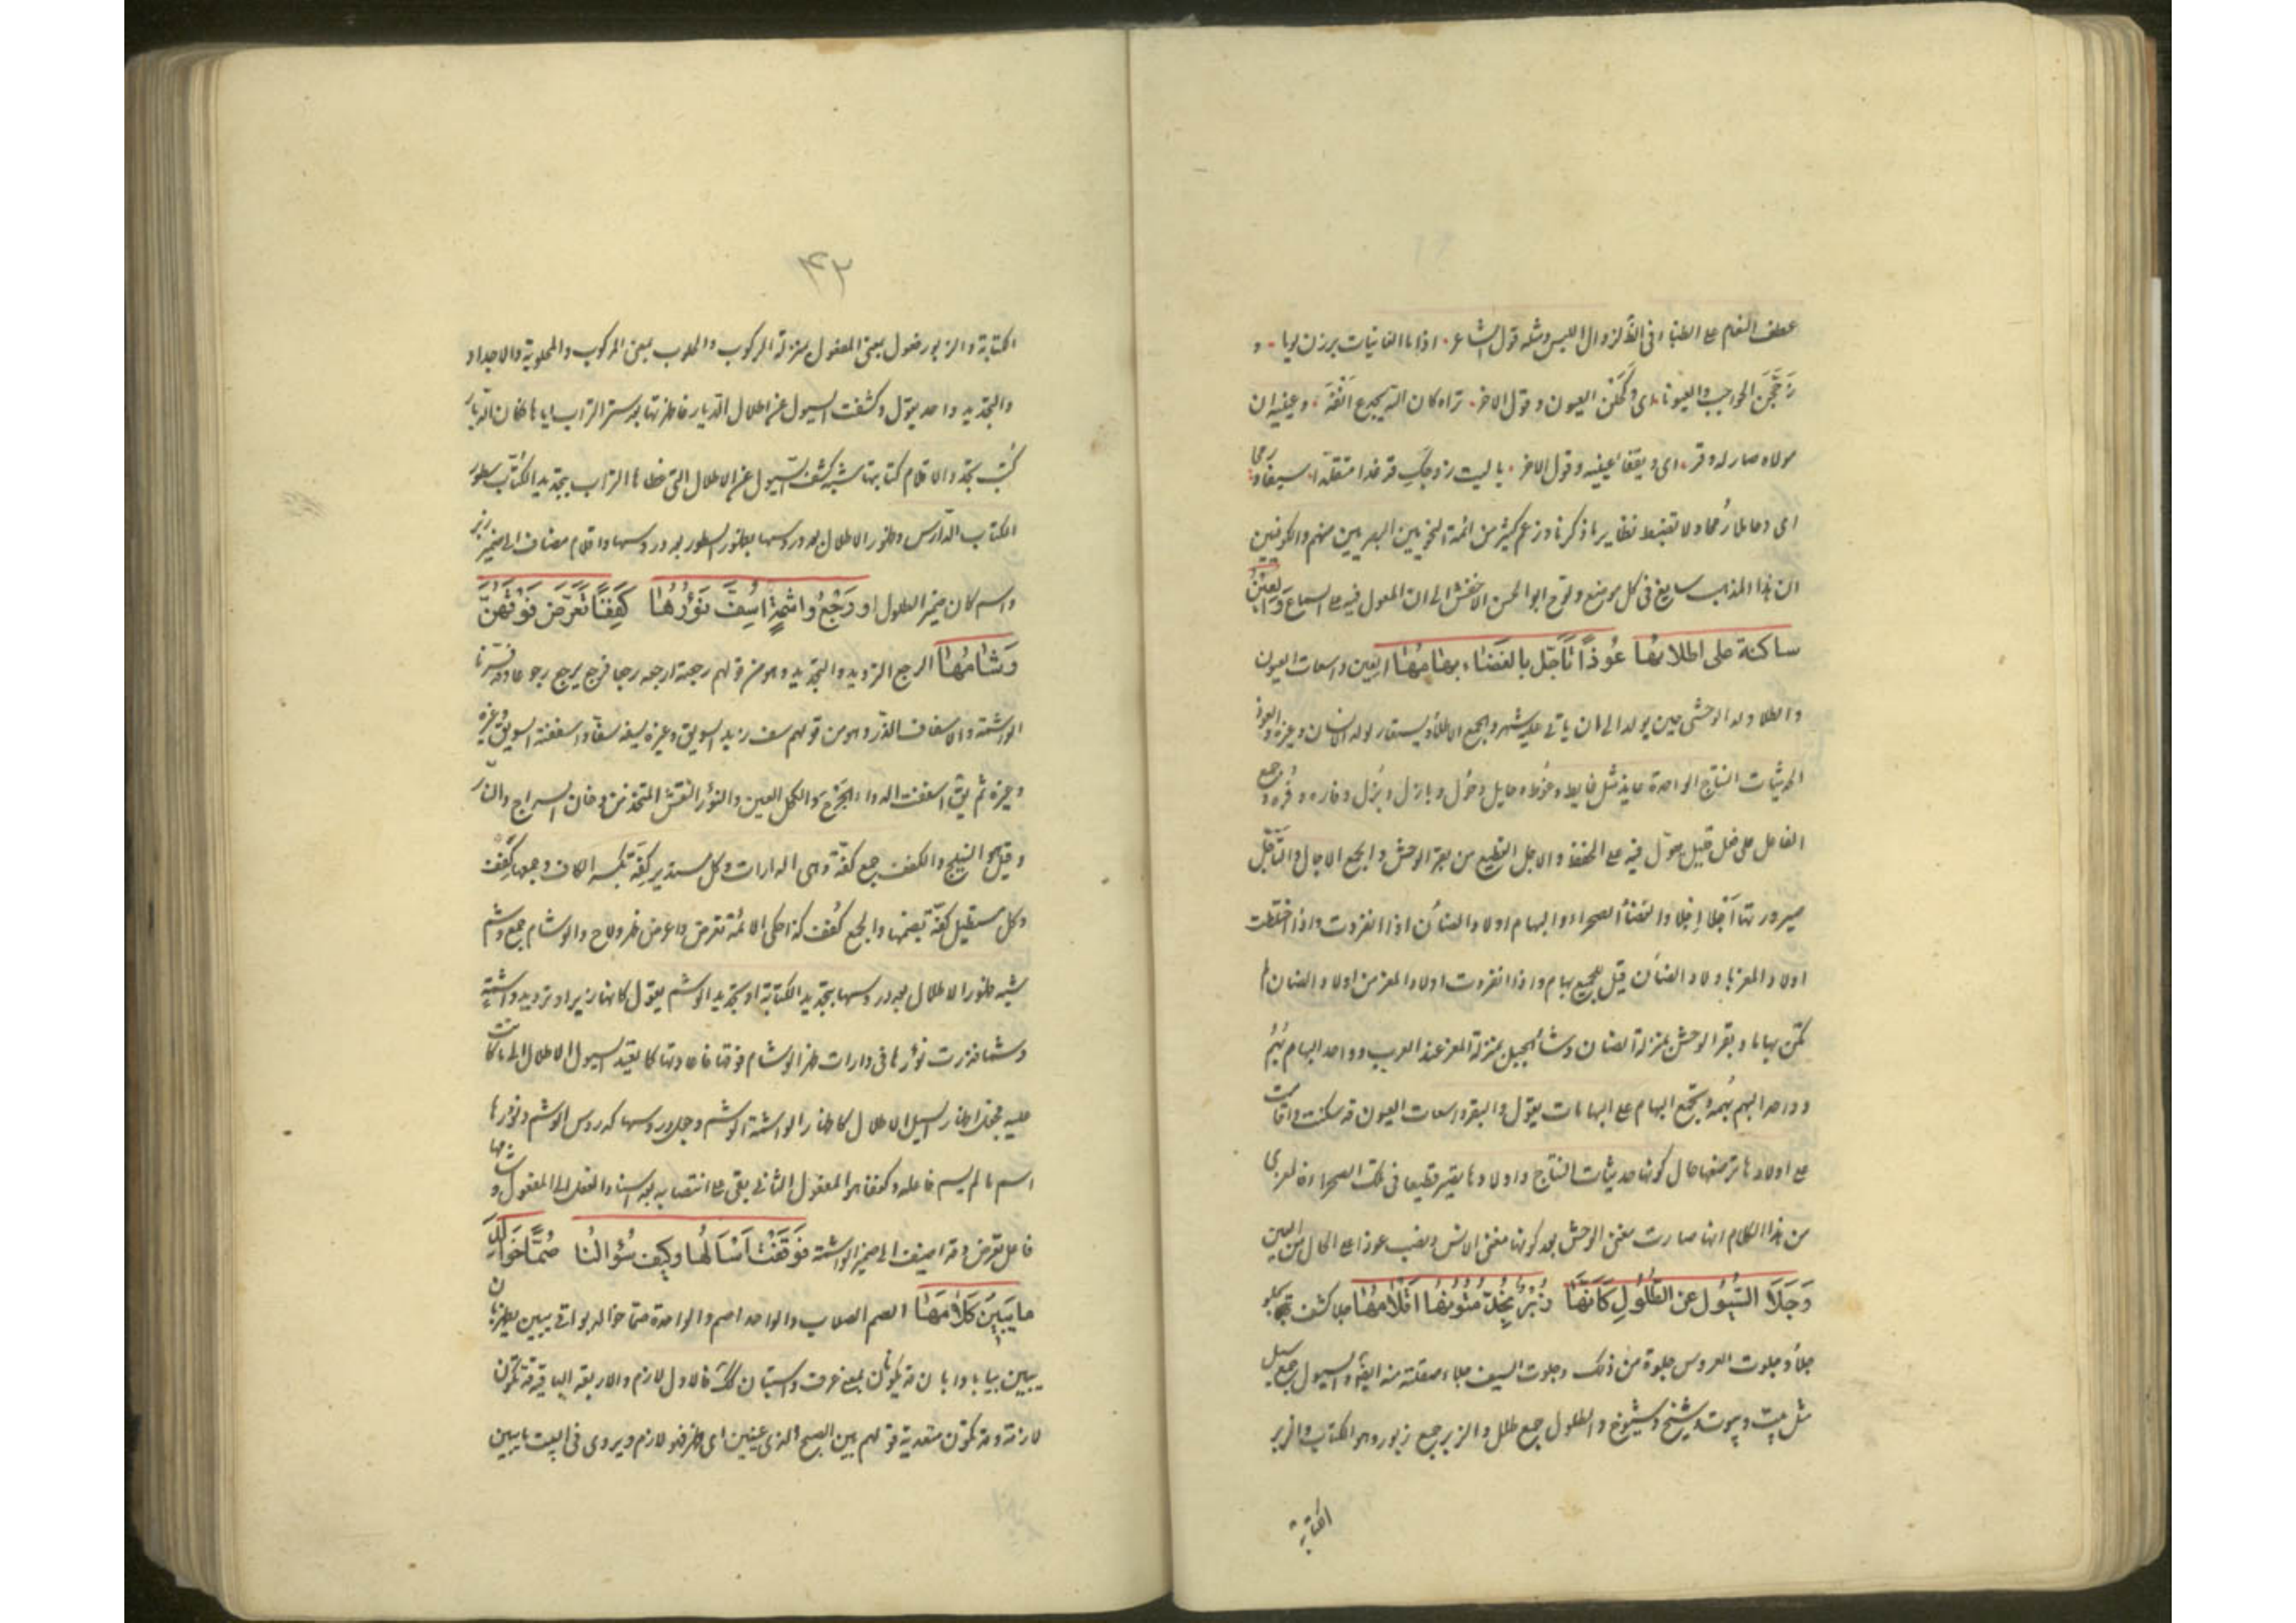 عطف النعام على الظباء فى اللفظ لزوال اللبس ومثله قول الشاعر اذا ما الغانيات برزن يوما و
زججن الحواجب والعيونا اى وكحلن العيون وقول الاخر تراه كان الله يجدع انفه وعينيه ان
مولاه صار له وفر اى ويفقأ عينيه وقول الاخر يا ليت زوجك قد غدا متقلدا سيفا ورمحا
اى وحاملا رمحا ولا تضبط نظاير ما ذكرنا وزعم كثير من ائمة النحويين البصريين منهم والكوفيين
ان هذا المذهب سايغ فى كل موضع ولوح ابو الحسن الاخفش الى ان المعول فيه على السماع وَالعِينُ
ساكنة على اطلائها عُوذًا تَأَجَّل بالفضاء بهامُها العين واسعات العيون
والطلا ولد الوحش حين يولد الى ان ياتى عليه شهر والجمع الاطلاء ويستعار لولد الانسان وغيره والعوذ
الحديثات النتاج الواحدة عايذ مثل عايط وعوط وحايل وحول وبازل وبزل وفاره وفره وجمع
الفاعل على فعل قليل معول فيه على الحفظ والاجل القطيع من بقر الوحش والجمع الاجال والتأجل
صيرورتها اجلا اجلا والفضاء الصحراء والبهام اولاد الضأن اذا انفردت واذا اختلطت
اولاد المعز باولاد الضأن قيل للجميع بهام واذا انفردت اولاد المعز من اولاد الضان لم
تكن بهاما وبقر الوحش بمنزلة الضان وشاء الجبل بمنزلة المعز عند العرب وواحد البهام بهم
وواحد البهم بهمة وتجمع البهام على البهامات يقول والبقر واسعات العيون قد سكنت واقامت
على اولادها ترضعها حال كونها حديثات النتاج واولادها يصير قطيعا فى تلك الصحراء فالمعنى
من هذا الكلام انها صارت مغنى الوحش بعد كونها مغنى الانس ونصب عوذا على الحال من العين
وَجَلَا السُّيُولُ عن الطُّلُولِ كَأَنَّها زُبُرٌ تُجِدّ مُتُونُها اَقْلامُها جلا كشف يجلو
جلاء وجلوت العروس جلوة من ذلك وجلوت السيف جلاء صقلته منه ايضا والسيول جمع سيل
مثل بيت وبيوت وشيخ وشيوخ والطلول جمع طلل والزبر جمع زبور وهو الكتاب والزبر
الكتابة
٤٢
الكتابة والزبور فعول بمعنى المفعول بمنزلة الركوب والحلوب بمعنى المركوب والمحلوب والاجداد
والتجديد واحد يقول وكشفت السيول عن اطلال الديار فاظهرتها بعد ستر التراب اياها فكان الديار
كتب تجدد الاقلام كتابتها شبه كشف السيول عن الاطلال التى غطاها التراب بتجديد الكتاب سطور
الكتاب الدارس وظهور الاطلال بعد دروسها بظهور السطور بعد دروسها واقلام مضاف الى ضمير زبر
واسم كان ضمير الطلول او رَجْعُ واشِمَةٍ اُسِفَّ نَؤُرُهَا كِفَفًا تَعَرَّضَ فَوْقَهُنَّ
وَشامُها الرجع الترديد والتجديد وهو من قولهم رجعته ارجعه رجعا فرجع يرجع رجوعا وقد فسرنا
الواشمة والاسفاف الذر وهو من قولهم سف زيد السويق وغيره يسفه سفا واسففته السويق وغيره
وغيره ثم يق اسففت الدواء الجرح والكحل العين والنؤر النقش المتخذ من دخان السراج والنار
وقيل هو النيلج والكفف جمع كفة وهى الدارات وكل مستدير كفة بكسر الكاف وجمعها كفف
وكل مستطيل كفة بضمها والجمع كفف كذا حكى الائمة تعرض واعرض ظهر ولاح والوشام جمع وشم
شبه ظهور الاطلال بعد دروسها بتجديد الكتابة او تجديد الوشم يقول كانها زبر او ترديد واشمة
وشما فذرت نؤرها فى دارات ظهر الوشام فوقها فاعادتها كما يعيد السيول الاطلال الى ما كانت
عليه فجعل اظهار السيل الاطلال كاظهار الواشمة الوشم وجعل دروسها كدروس الوشم ونؤرها
اسم ما لم يسم فاعله وكففا هو المفعول الثانى بقى على انتصابه بعد اسناد الفعل الى المفعول ووشامها
فاعل تعرض وقد اضيف الى ضمير الواشمة فَوَقَفْتُ اَسْأَلُها وكيف سُؤالُنا صُمًّا خَوالِدَ
ما يَبينُ كَلامُها الصم الصلاب والواحد اصم والواحدة صماء خوالد بواقى يبين يظهر بان
يبين بيانا وابان قد يكون بمعنى عرفت واستبان كذلك فالاول لازم والاربعة الباقية قد تكون
لازمة وقد تكون متعدية قولهم بين الصبح لذى عينين اى ظهر فهو لازم ويروى فى البيت ما يبين